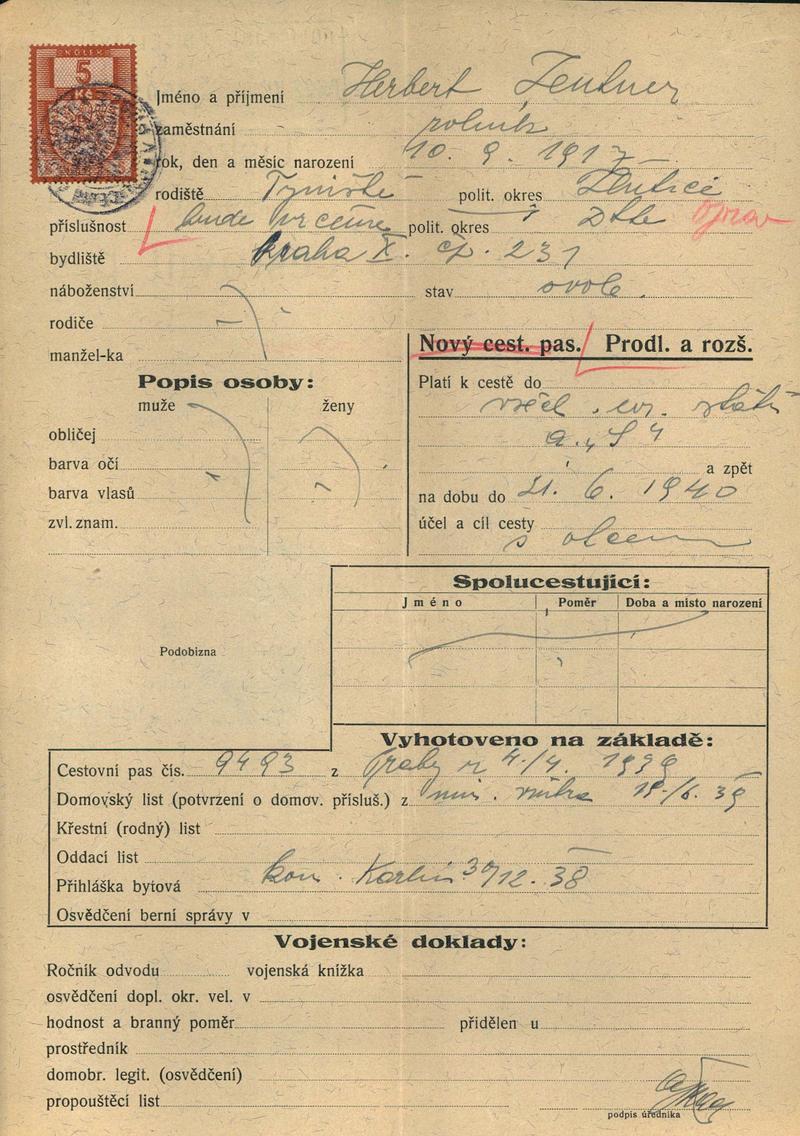 KOLEK
5
Kč
Jméno a příjmení Herbert Zentner
zaměstnání rolník
rok, den a měsíc narození 10. 9. 1917
rodiště Týniště polit. okres Žlutice
příslušnost bude určena polit. okres Dtto oprav
bydliště Praha X. čp. 231
náboženství stav svob.
rodiče
manžel-ka
Nový cest. pas. Prodl. a rozš.
Popis osoby:
muže ženy
obličej
barva očí
barva vlasů
zvl. znam.
Platí k cestě do
všech evr. států
a. "S"
a zpět
na dobu do 21. 6. 1940
účel a cíl cesty
s otcem
Spolucestující:
Jméno Poměr Doba a misto narození
Podobizna
Vyhotoveno na základě:
Cestovní pas čís. 9493 z Prahy z 4./4. 1939
Domovský list (potvrzení o domov. přísluš.) z min. vnitra 6. 39
Křestní (rodný) list
Oddací list
Přihláška bytová kom. Karlín 30/12. 38
Osvědčení berní správy v
Vojenské doklady:
Ročník odvodu vojenská knížka
osvědčení dopl. okr. vel. v
hodnost a branný poměr přidělen u
prostředník
domobr. legit. (osvědčení)
propouštěcí list
podpis úředníka